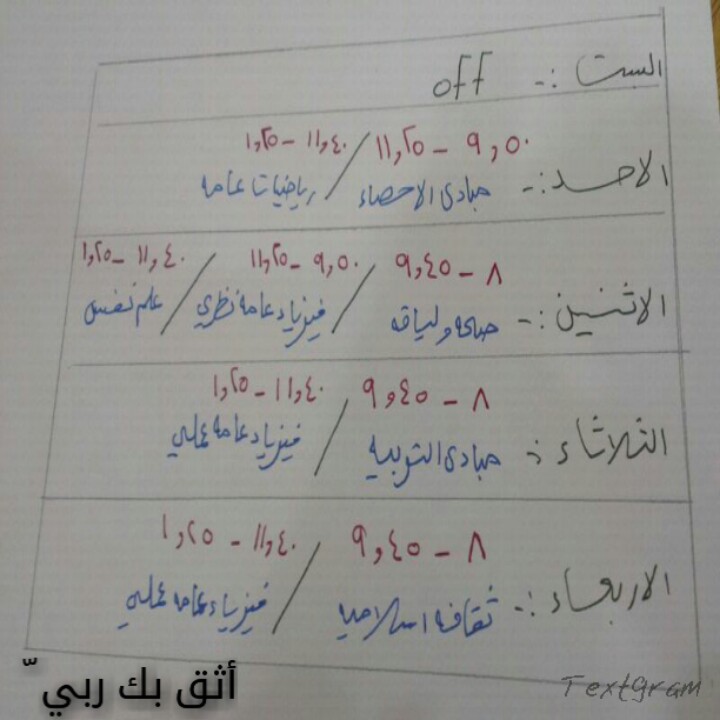 الست :- off
٩,٥٠ - ١١,٢٥ / ١١,٤٠ - ١,٢٥
الاحد :- مبادئ الاحصاء / رياضيات عامه
٨ - ٩,٤٥ / ٩,٥٠ - ١١,٢٥ / ١١,٤٠ - ١,٢٥
الاثنين :- صحه ولياقه / فيزياء عامه نظري / علم نفس
٨ - ٩,٤٥ / ١١,٤٠ - ١,٢٥
الثلاثاء :- مبادئ التربيه / فيزياء عامه عملي
٨ - ٩,٤٥ / ١١,٤٠ - ١,٢٥
الاربعاء :- ثقافه اسلاميه / فيزياء عامه عملي
أثق بك ربي ّ
Textgram